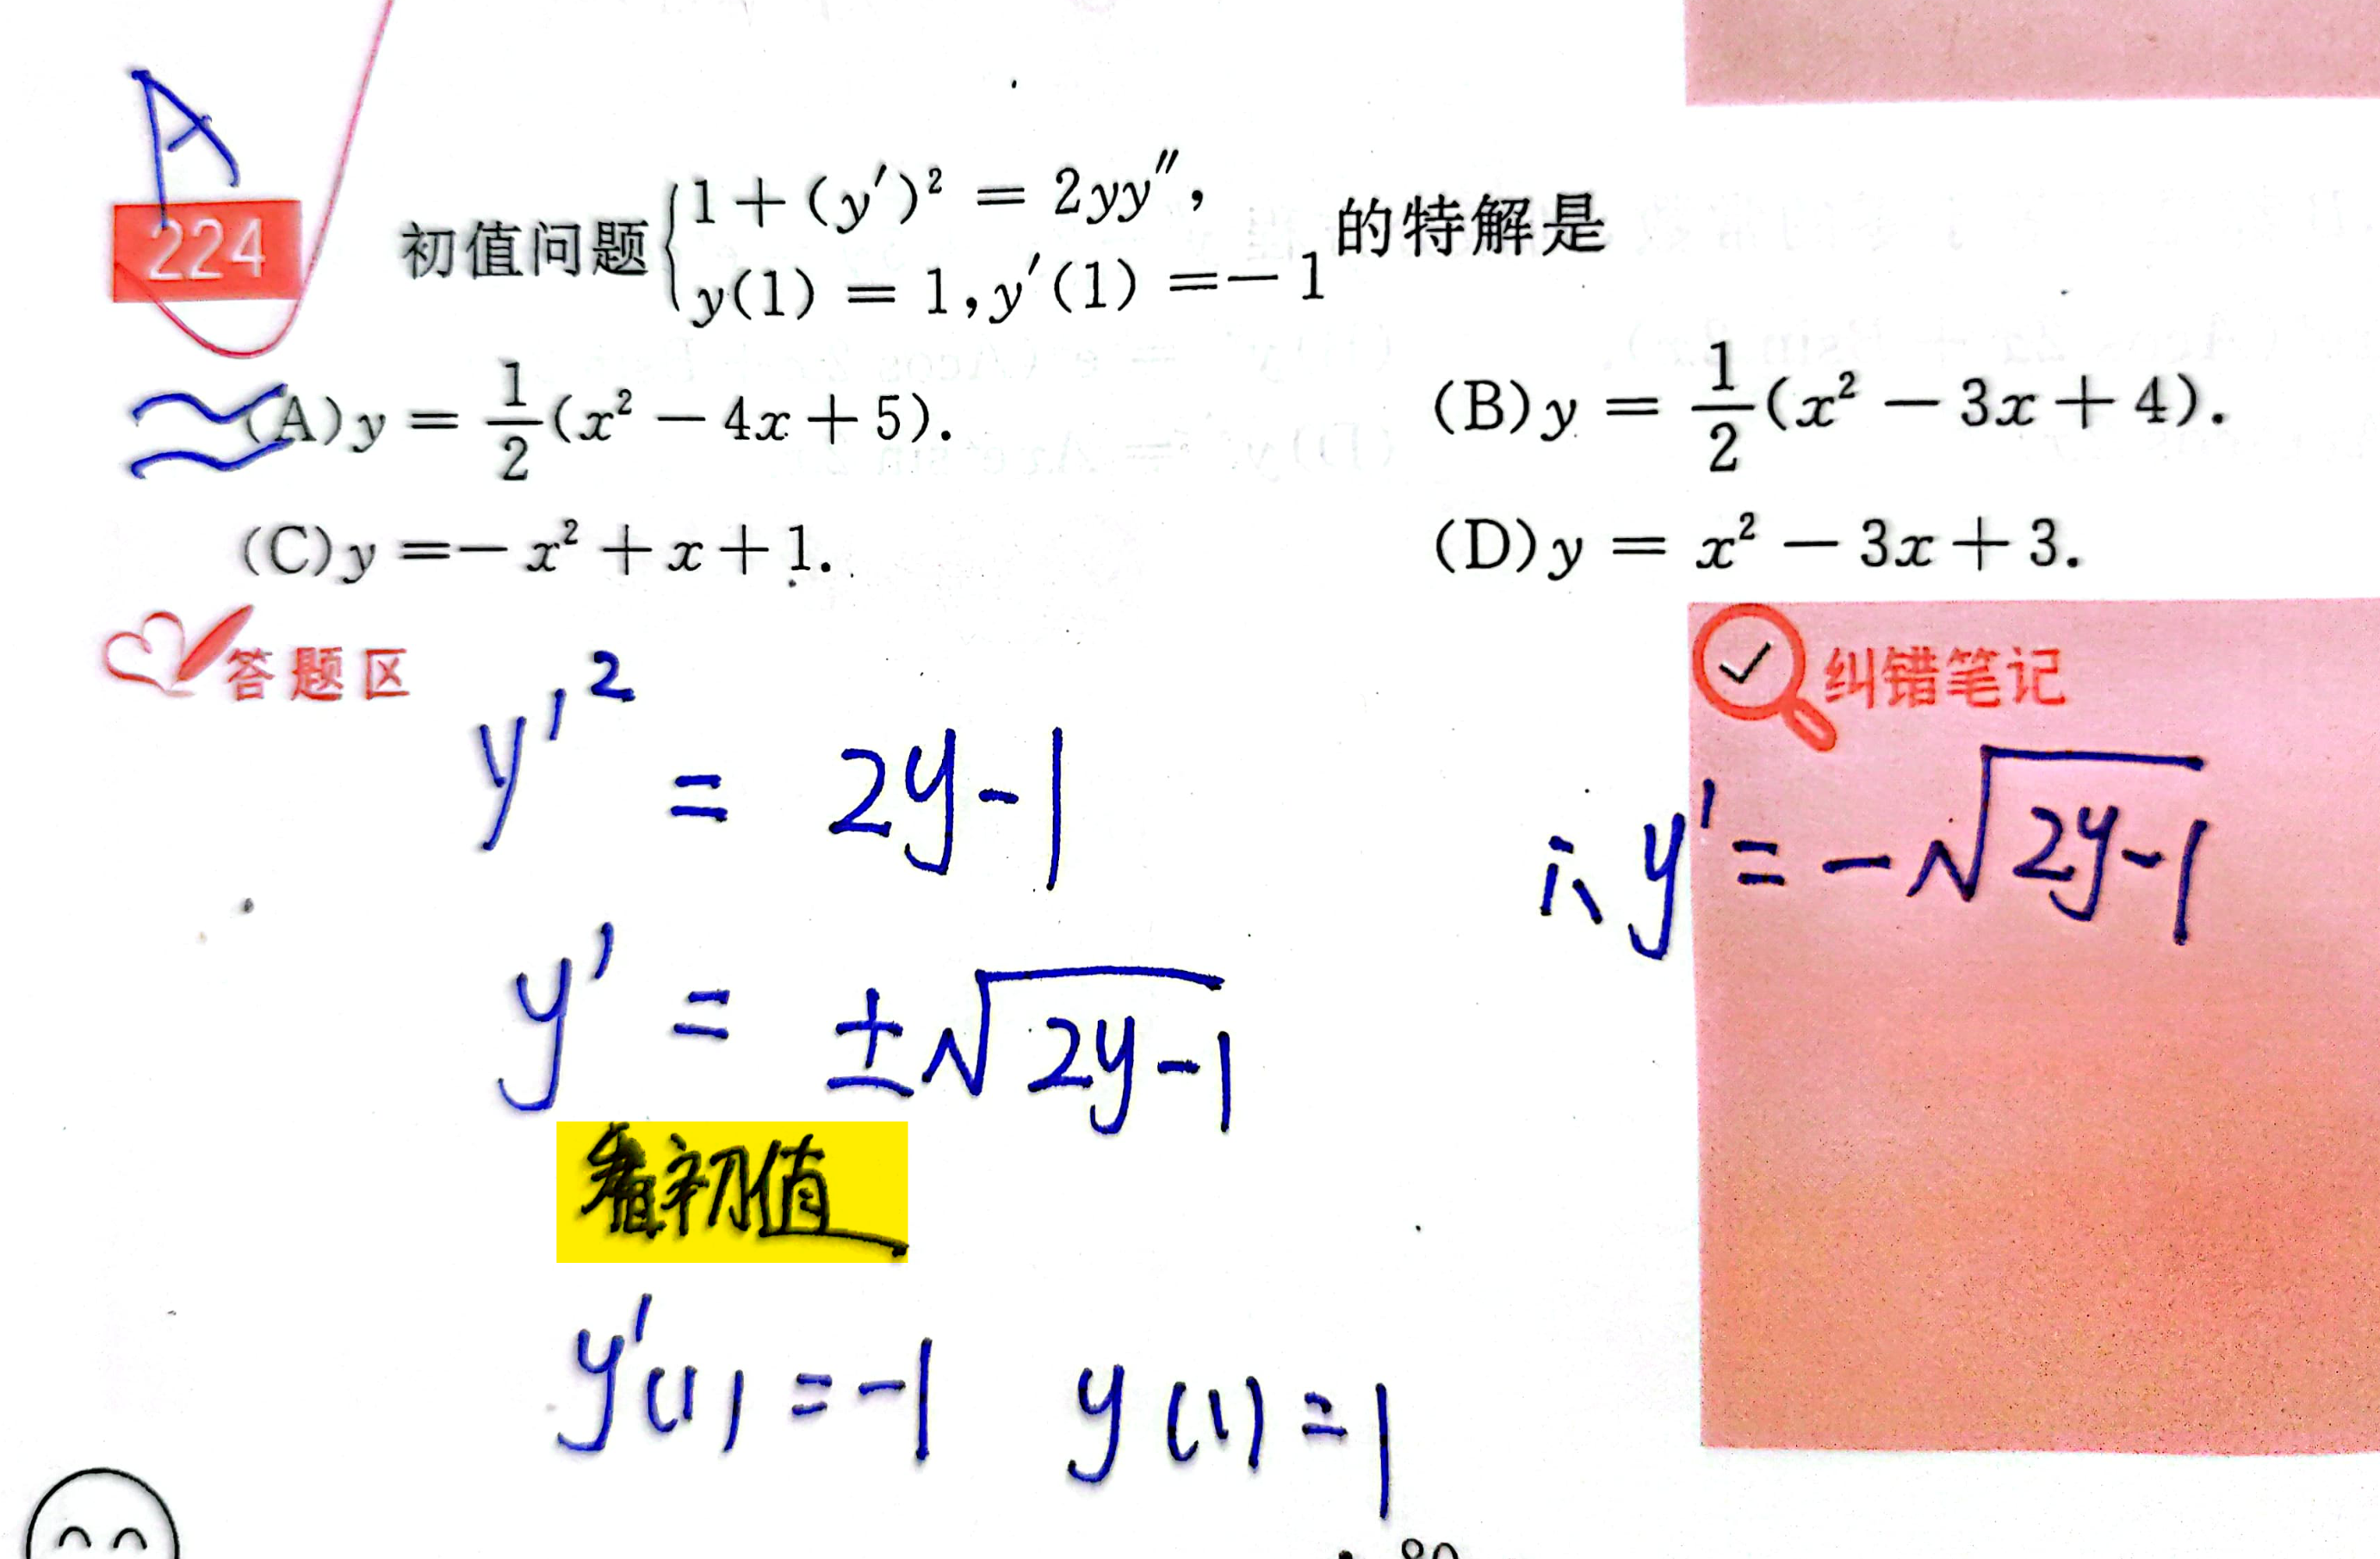 A
224 初值问题 { 1 + (y′)² = 2yy″,
y(1) = 1, y′(1) = −1 的特解是
(A) y = 1/2 (x² − 4x + 5). (B) y = 1/2 (x² − 3x + 4).
(C) y = − x² + x + 1. (D) y = x² − 3x + 3.
答题区 纠错笔记
y′² = 2y−1
∴ y′ = −√(2y−1)
y′ = ±√(2y−1)
看初值
y′(1) = −1 y(1) = 1